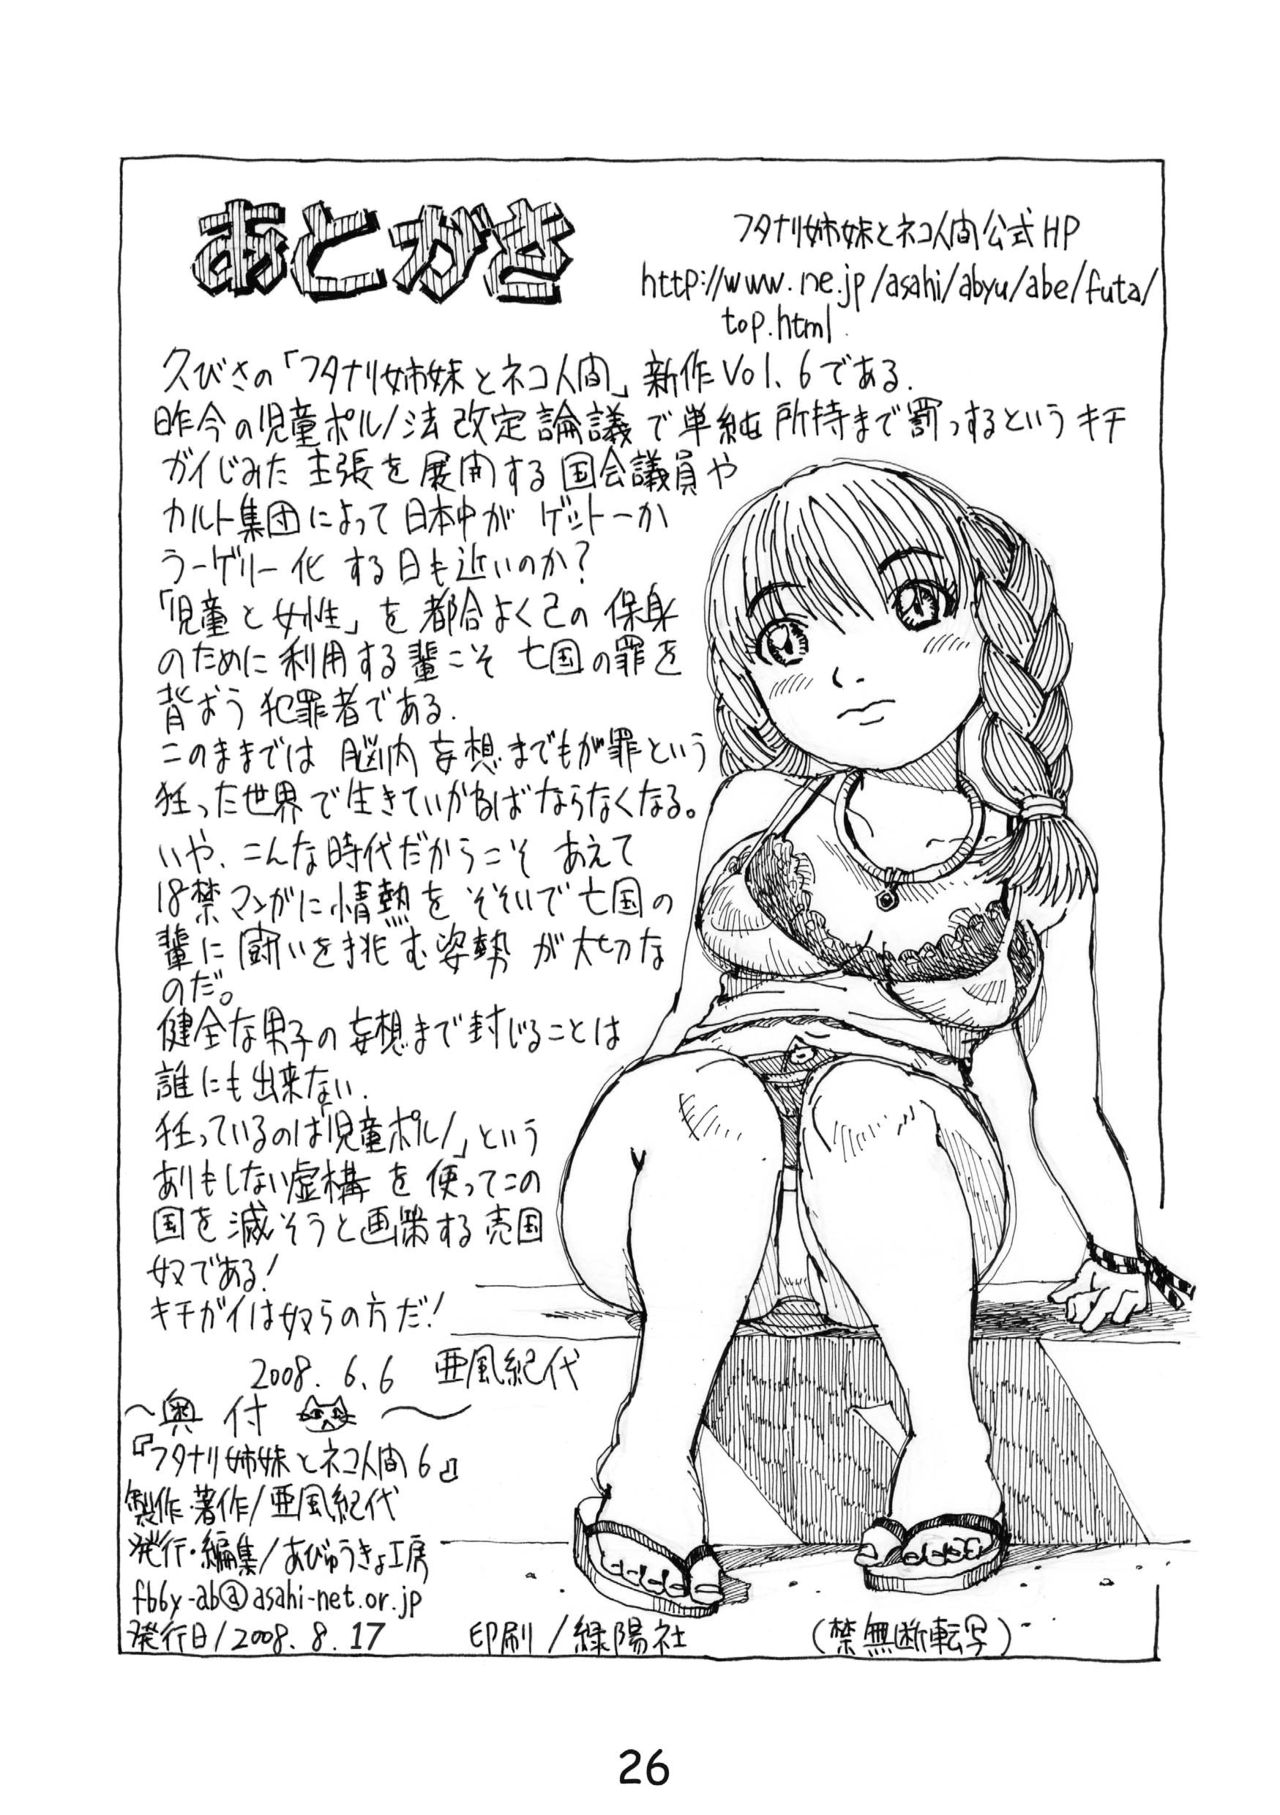 あとがき
フタナリ姉妹とネコ人間公式HP
http://www.ne.jp/asahi/abyu/abe/futa/
top.html
久びさの「フタナリ姉妹とネコ人間」新作Vol.6である.
昨今の児童ポルノ法改定論議で単純所持まで罰っするというキチ
ガイじみた主張を展開する国会議員や
カルト集団によって日本中がゲットーか
ラーゲリー化する日も近いのか?
「児童と女性」を都合よく己の保身
のために利用する輩こそ亡国の罪を
背おう犯罪者である.
このままでは脳内妄想までもが罪という
狂った世界で生きていかねばならなくなる。
いや、こんな時代だからこそあえて
18禁マンガに情熱をそそいで亡国の
輩に闘いを挑む姿勢が大切な
のだ。
健全な男子の妄想まで封じることは
誰にも出来ない.
狂っているのは「児童ポルノ」という
ありもしない虚構を使ってこの
国を滅そうと画策する売国
奴である!
キチガイは奴らの方だ!
2008.6.6 亜風紀代
～奥付～
『フタナリ姉妹とネコ人間6』
製作・著作/亜風紀代
発行・編集/あびゅうきょ工房
fb6y-ab@asahi-net.or.jp
発行日/2008.8.17 印刷/緑陽社 (禁無断転写)
26